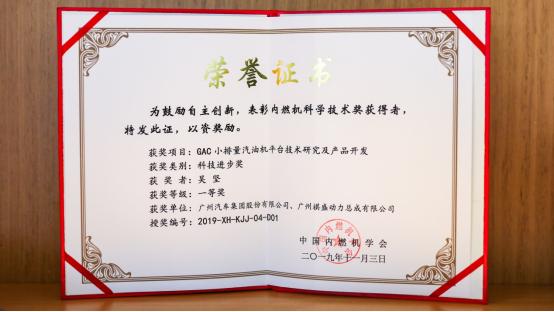 荣誉证书
为鼓励自主创新，表彰内燃机科学技术奖获得者，
特发此证，以资奖励。
获奖项目：GAC 小排量汽油机平台技术研究及产品开发
获奖类别：科技进步奖
获 奖 者：吴 坚
获奖等级：一等奖
获奖单位：广州汽车集团股份有限公司、广州祺盛动力总成有限公司
授奖编号：2019-XH-KJJ-04-D01
中国内燃机学会
二〇一九年十一月三日